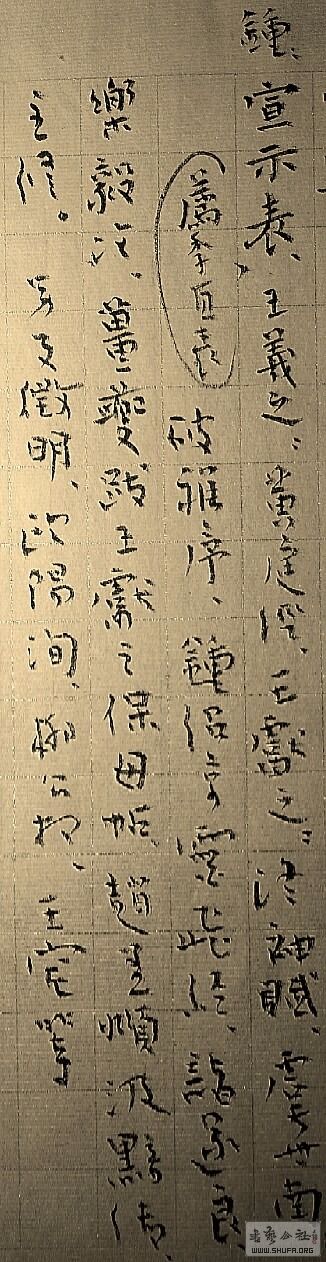 鍾、宣示表、王羲之：黄庭經、王獻之：洛神賦、虞世南
薦季直表 破雅序、鍾绍京靈飛經、諸遂良
樂毅论、薑夔跋王獻之保母帖、趙孟頫汲黯传、
主修。 另文徵明、欧陽洵、柳公权、王寵等
书艺公社
WWW.SHUFA.ORG